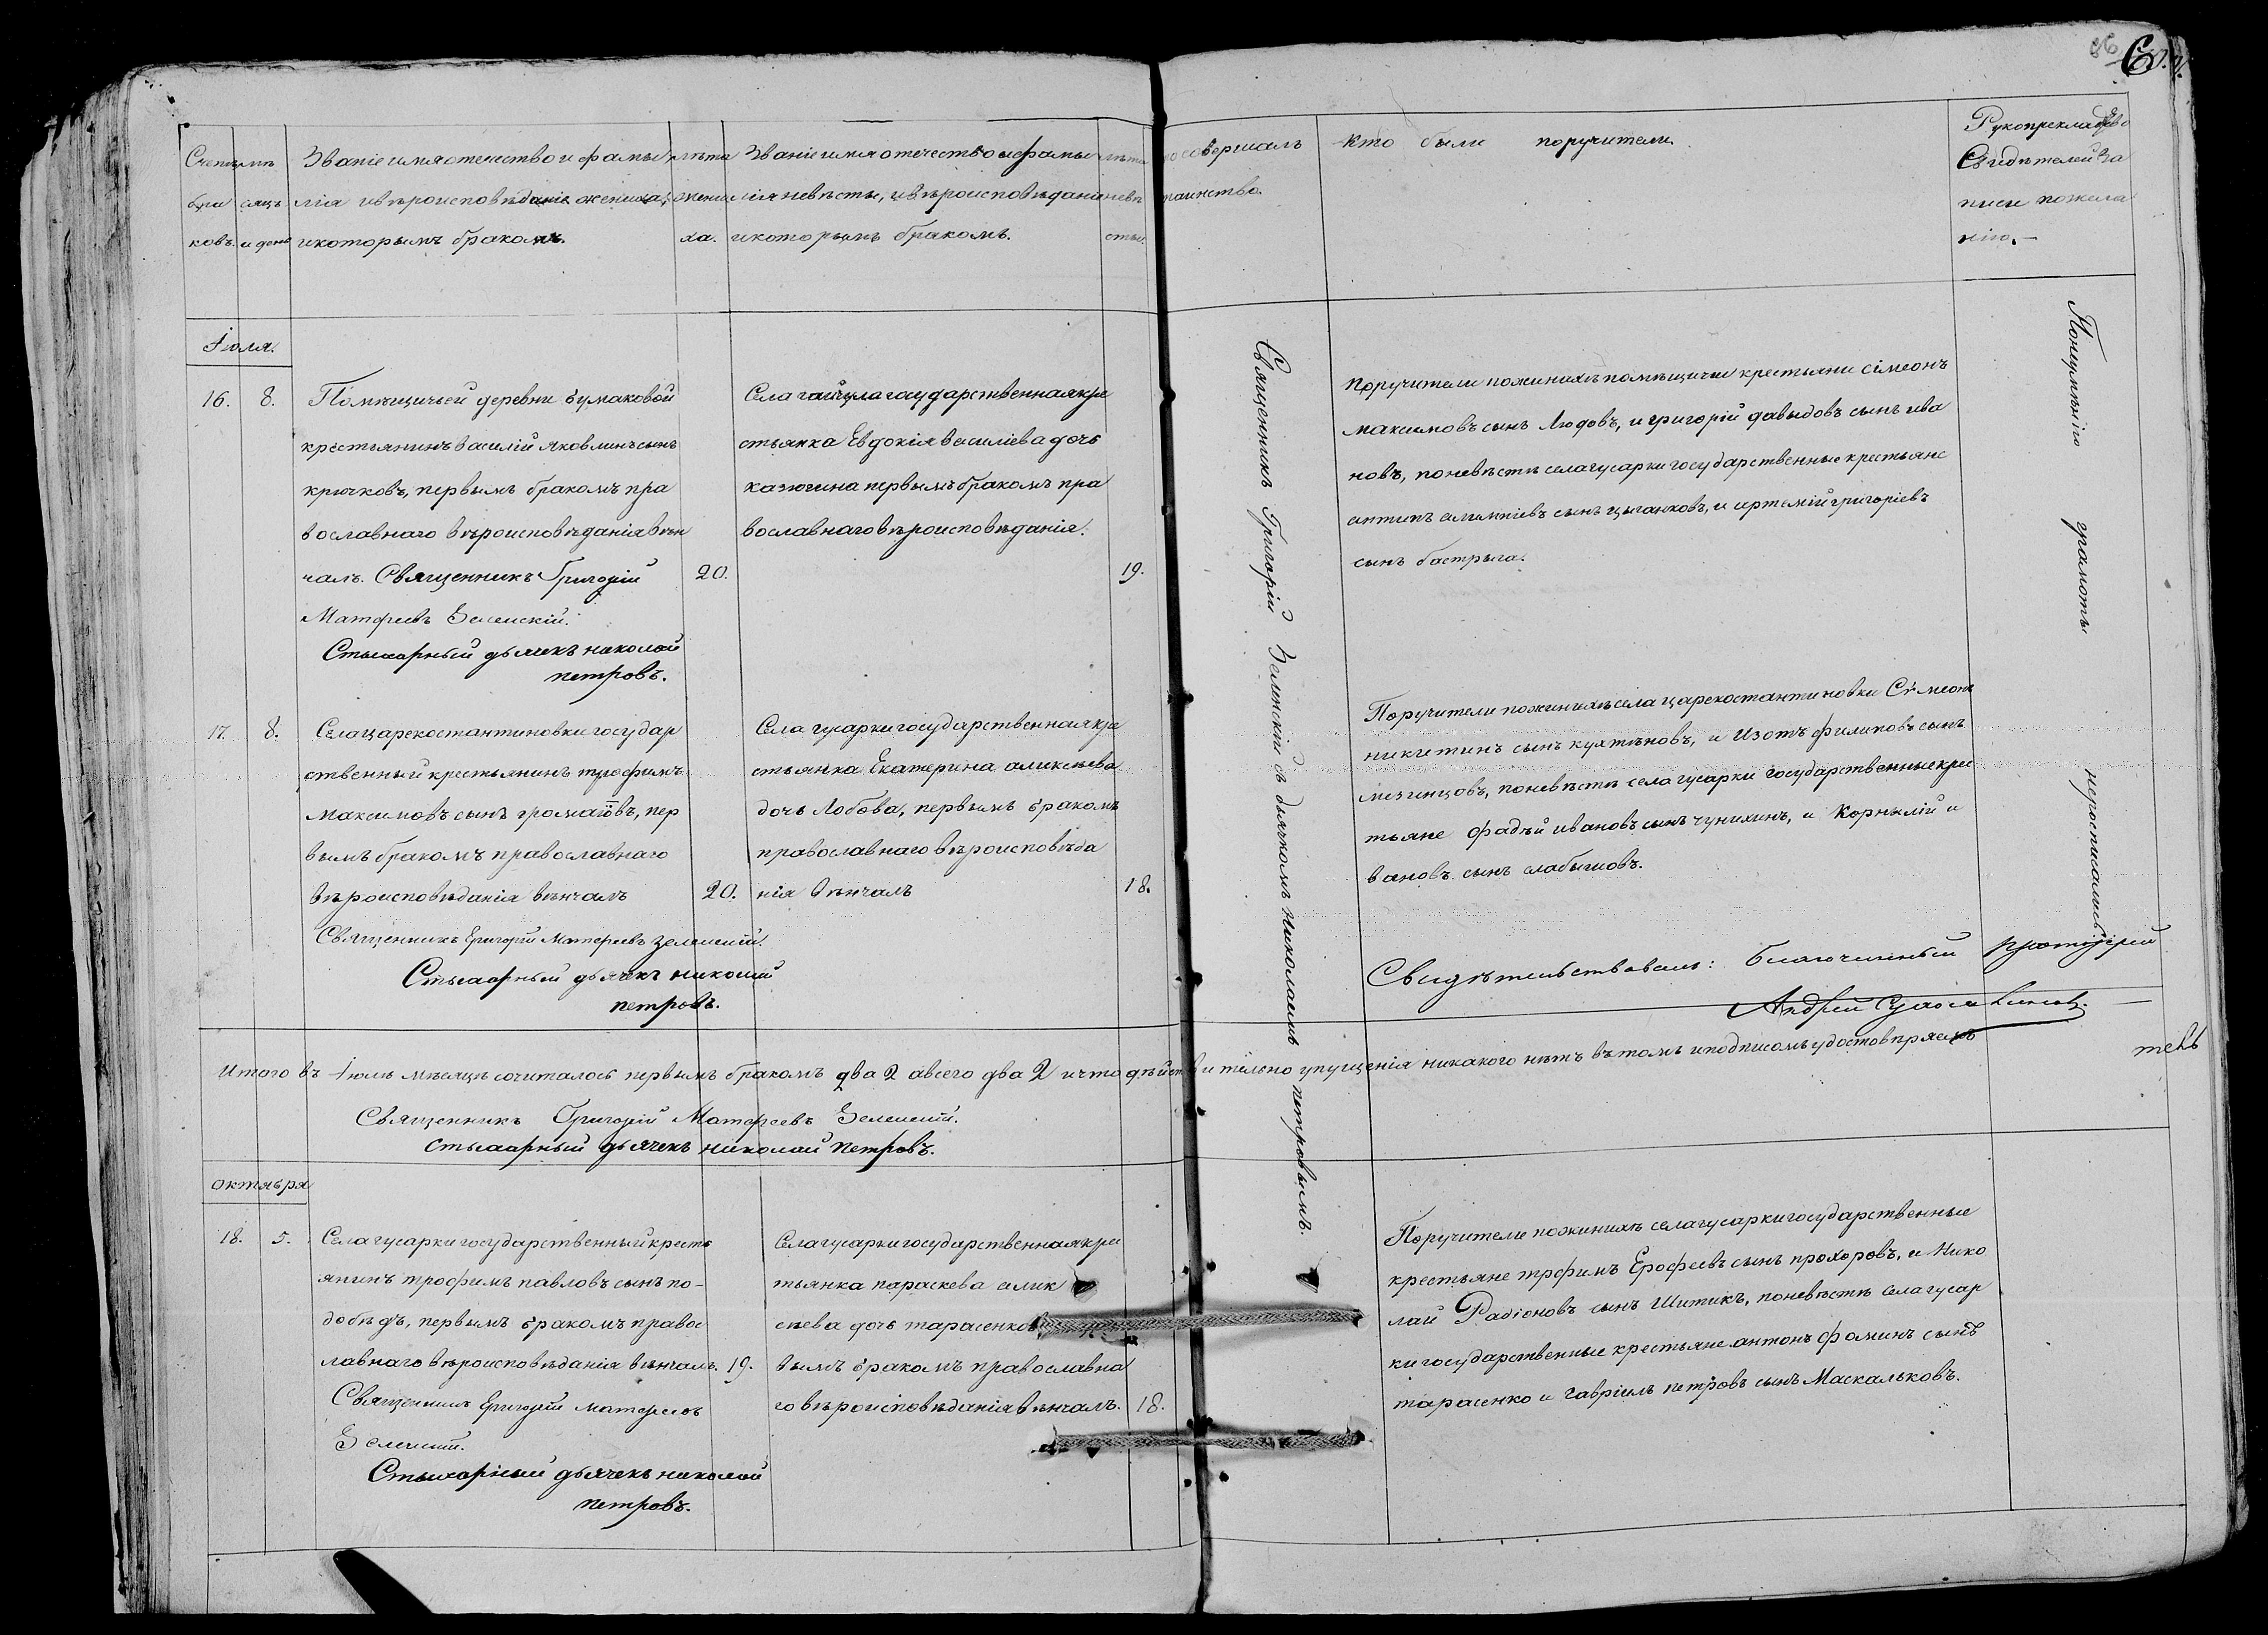 86
Счетъ
бра
ковъ.
мѣ
сяцъ
и день
Званіе имя отечество и фами
лія и вѣроисповѣданіе жениха,
и которымъ бракомъ.
лѣта
жени
ха.
Званіе имя отечество и фами
лія невѣсты, и вѣроисповѣданіе
и которымъ бракомъ.
лѣта
невѣ
сты.
совершалъ
таинство.
кто были поручители.
Рукоприкладство
Свидѣтелей за
писи по жела
нію.
Іюля.
16. 8.
Помѣщичьей деревни бумаковой
крестьянинъ василій яковлинъ сынъ
крючковъ, первымъ бракомъ пра
вославнаго вѣроисповѣданія вѣн
чалъ. Священникъ Григорій
Матфеевъ Зеленскій.
Стыхарный дьячекъ николай
петровъ.
20.
Села гайчула государственная кре
стьянка Евдокія василіева дочь
казючина первымъ бракомъ пра
вославнаго вѣроисповѣданія.
19.
Поручители по женихѣ помѣщичьи крестьяни сімеонъ
максимовъ сынъ Людовъ, и григорій давыдовъ сынъ ива
новъ, по невѣстѣ села гусарки государственные крестьяне
антипъ алимпіевъ сынъ цыганковъ, и артемій григоріевъ
сынъ бастрыга.
17. 8.
Села царекостантиновки государ
ственный крестьянинъ трофимъ
максимовъ сынъ громатовъ, пер
вымъ бракомъ православнаго
вѣроисповѣданія вѣнчалъ
Священникъ Григорій Матфеевъ Зеленскій.
Стыхарный дьячекъ николай
петровъ.
20.
Села гусарки государственная кре
стьянка Екатерина аликсѣева
дочь Лобова, первымъ бракомъ
православнаго вѣроисповѣда
нія вѣнчалъ
18.
Поручители по женихѣ села царекостантиновки Сімеонъ
никитинъ сынъ кухтѣновъ, и Изотъ филиповъ сынъ
мизинцовъ, по невѣстѣ села гусарки государственные крес
тьяне фадѣй ивановъ сынъ чунихинъ, и Корнилій и
вановъ сынъ слабышовъ.
Священникъ Григорій Зеленскій съ дьячкомъ николаемъ петровымъ.
По неумѣнію грамоты неросписались
Свидѣтельствовалъ: благочинный протоіерей
Андрей
Итого въ Іюлѣ мѣсяцѣ сочиталось первымъ бракомъ два 2 а всего два 2 и что дѣйствительно упущенія никакого нѣтъ въ томъ и подписомъ удостовѣряемъ
Священникъ Григорій Матфеевъ Зеленскій.
Стыхарный дьячекъ николай петровъ.
октября
18. 5.
Села гусарки государственный кресть
янинъ трофимъ павловъ сынъ по-
добѣдъ, первымъ бракомъ правос
лавнаго вѣроисповѣданія вѣнчалъ.
Священникъ Григорій матфеевъ
Зеленскій.
Стыхарный дьячекъ николай
петровъ.
19.
Села гусарки государственная крес
тьянка параскева алик
сѣева дочь тарасенкова
вымъ бракомъ православна
го вѣроисповѣданія вѣнчалъ.
18.
Поручители по женихѣ села гусарки государственные
крестьяне трфимъ Ерофеевъ сынъ прохоровъ, и Нико
лай Радіоновъ сынъ Шитикъ, по невѣстѣ села гусар
ки государственные крестьяне антонъ фоминъ сынъ
тарасенко и гавріилъ петровъ сынъ Маскальковъ.